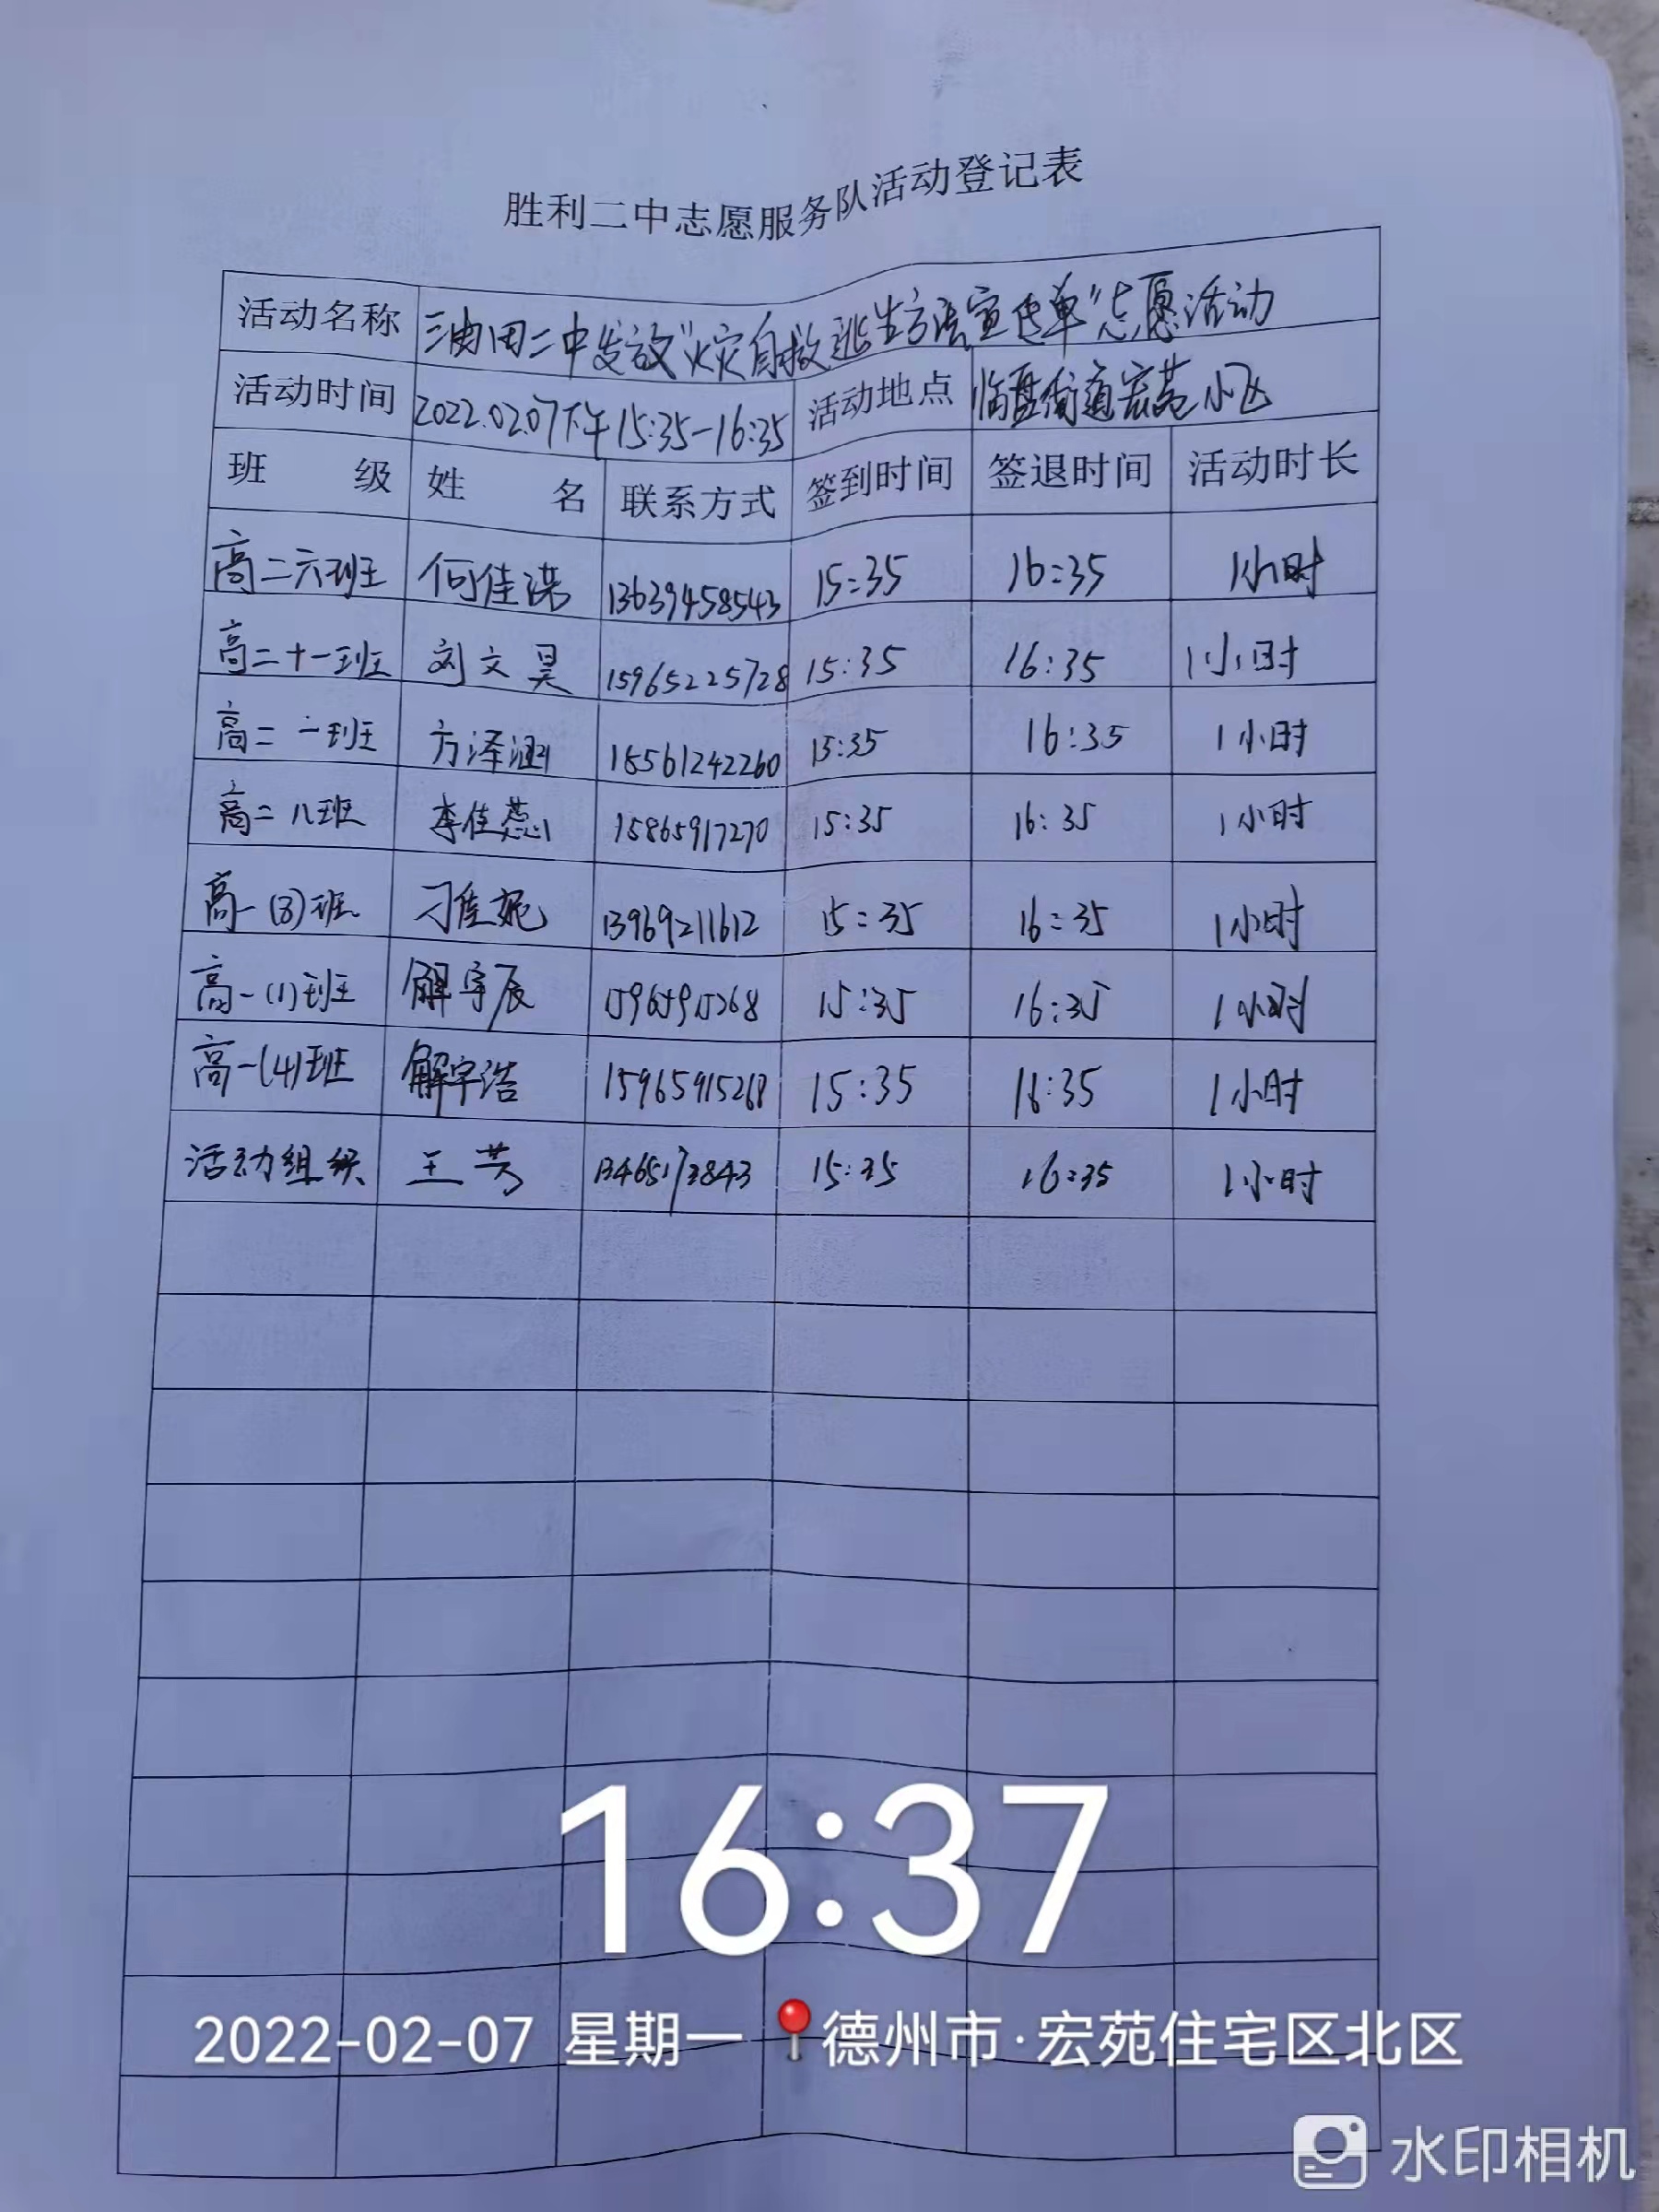 胜利二中志愿服务队活动登记表
活动名称 油田二中发放“火灾自救逃生方法宣传单”志愿活动
活动时间 2022.02.07下午15:35-16:35 活动地点 临盘街道宏苑小区
班 级 姓 名 联系方式 签到时间 签退时间 活动时长
高二六班 何佳 13639458543 15:35 16:35 1小时
高二十一班 刘文昊 15965225728 15:35 16:35 1小时
高二一班 方泽涵 18561242260 15:35 16:35 1小时
高二八班 李佳蕊 15865917270 15:35 16:35 1小时
高一(8)班 刁佳妮 13969211612 15:35 16:35 1小时
高一(1)班 解宇辰 15965915268 15:35 16:35 1小时
高一(4)班 解宇浩 15965915268 15:35 16:35 1小时
活动组织 王芳 15:35 16:35 1小时
16:37
2022-02-07 星期一 德州市·宏苑住宅区北区
水印相机